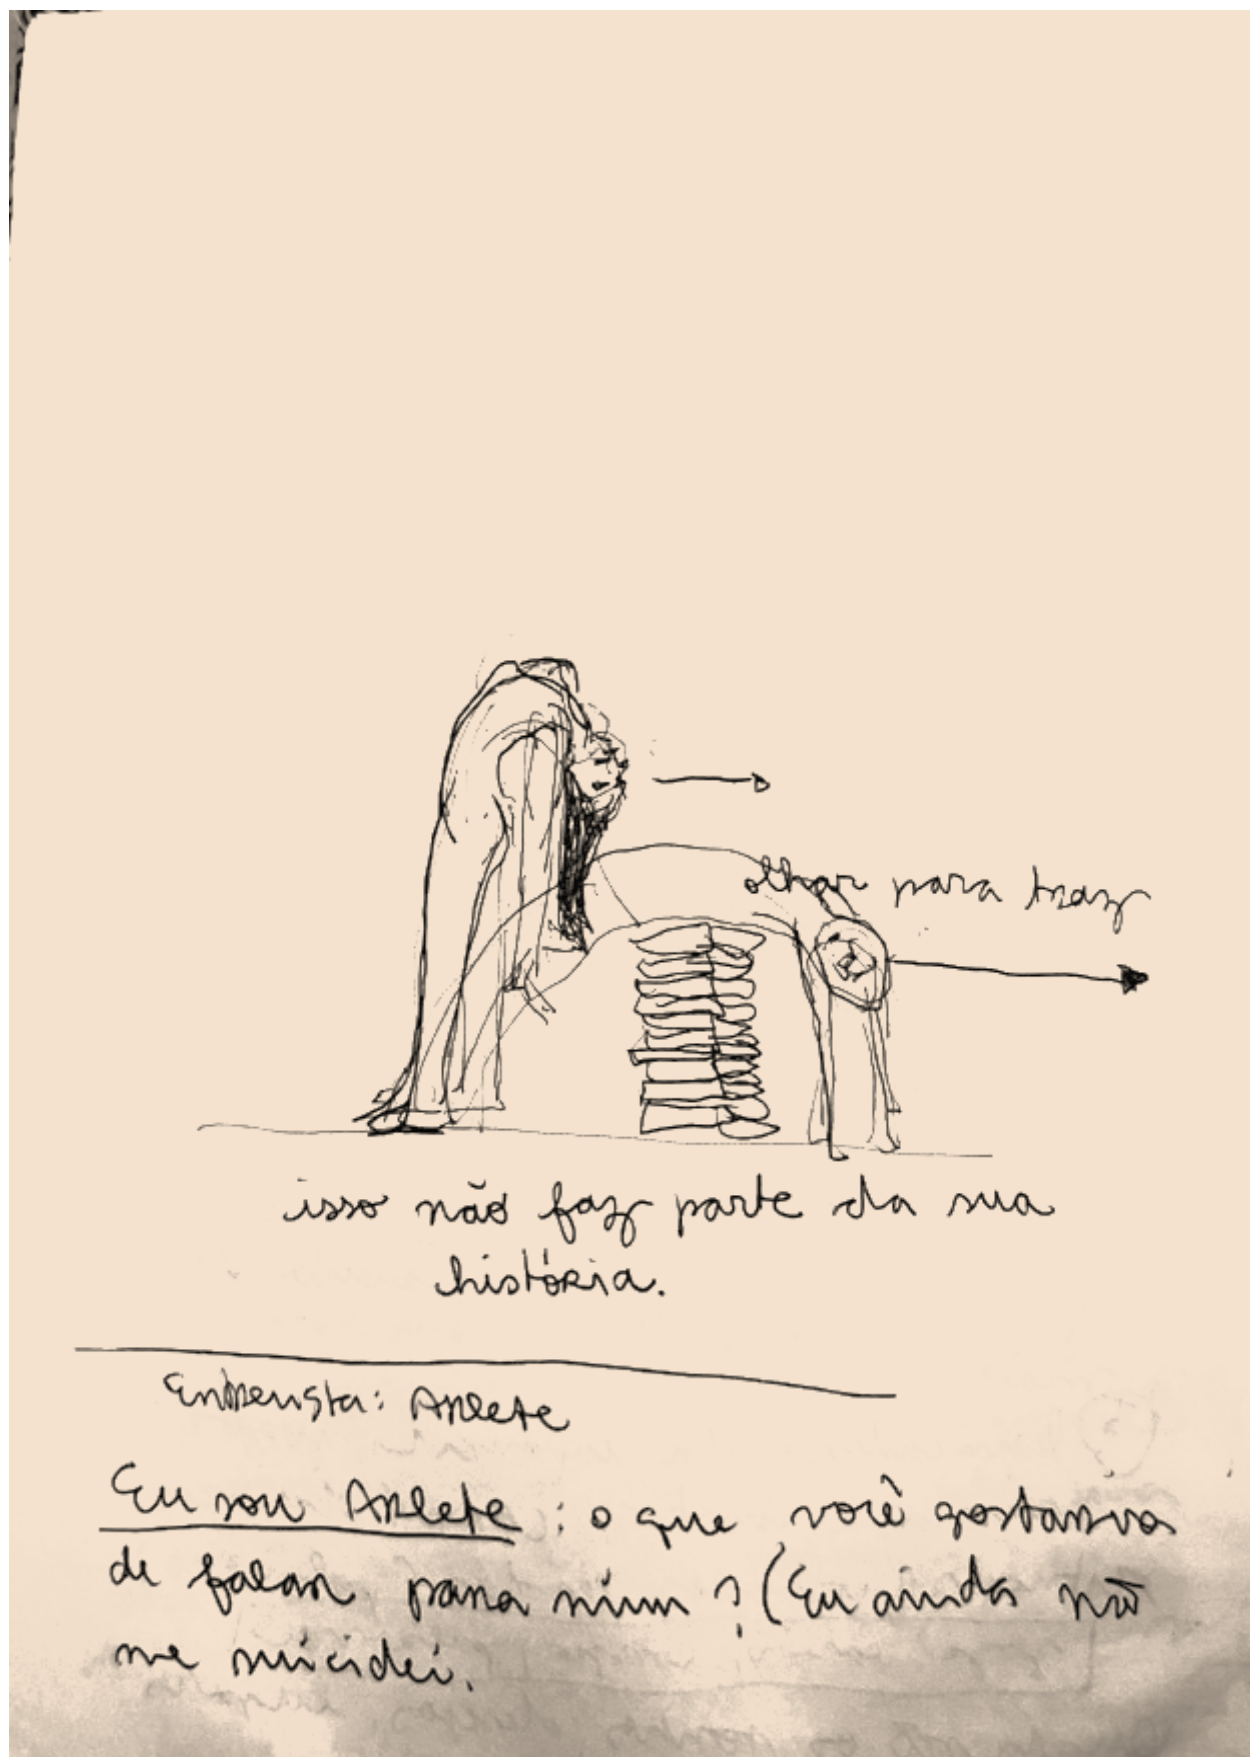 olhar para traz
isso não faz parte da sua
história.
Entrevista: Arlete
Eu sou Arlete : o que você gostaria
de falar para mim ? (Eu ainda não
me suicidei.